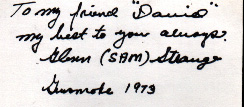 To my friend "David"
my best to you always.
Glenn (SAM) Strange
Gunsmoke 1973